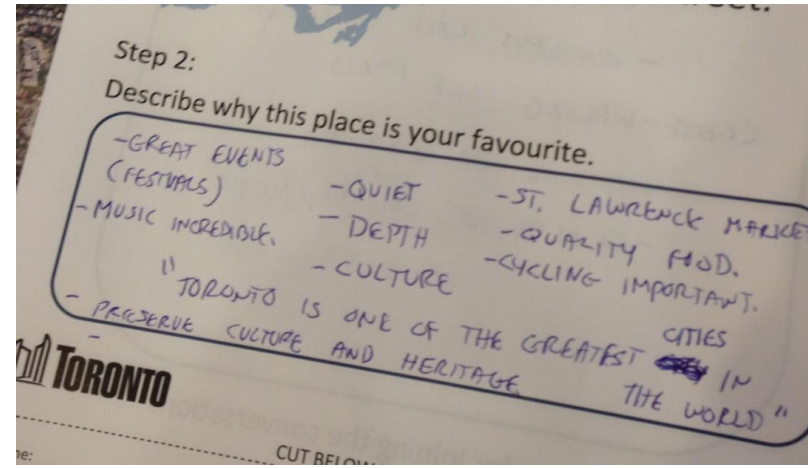 Step 2:
Describe why this place is your favourite.
-GREAT EVENTS
(FESTIVALS)
-MUSIC INCREDIBLE.
-QUIET
-DEPTH
-CULTURE
-ST. LAWRENCE MARKE
-QUALITY FOOD.
-CYCLING IMPORTANT.
"TORONTO IS ONE OF THE GREATEST CITIES IN
THE WORLD"
- PRESERVE CULTURE AND HERITAGE
TORONTO
CUT BELOW